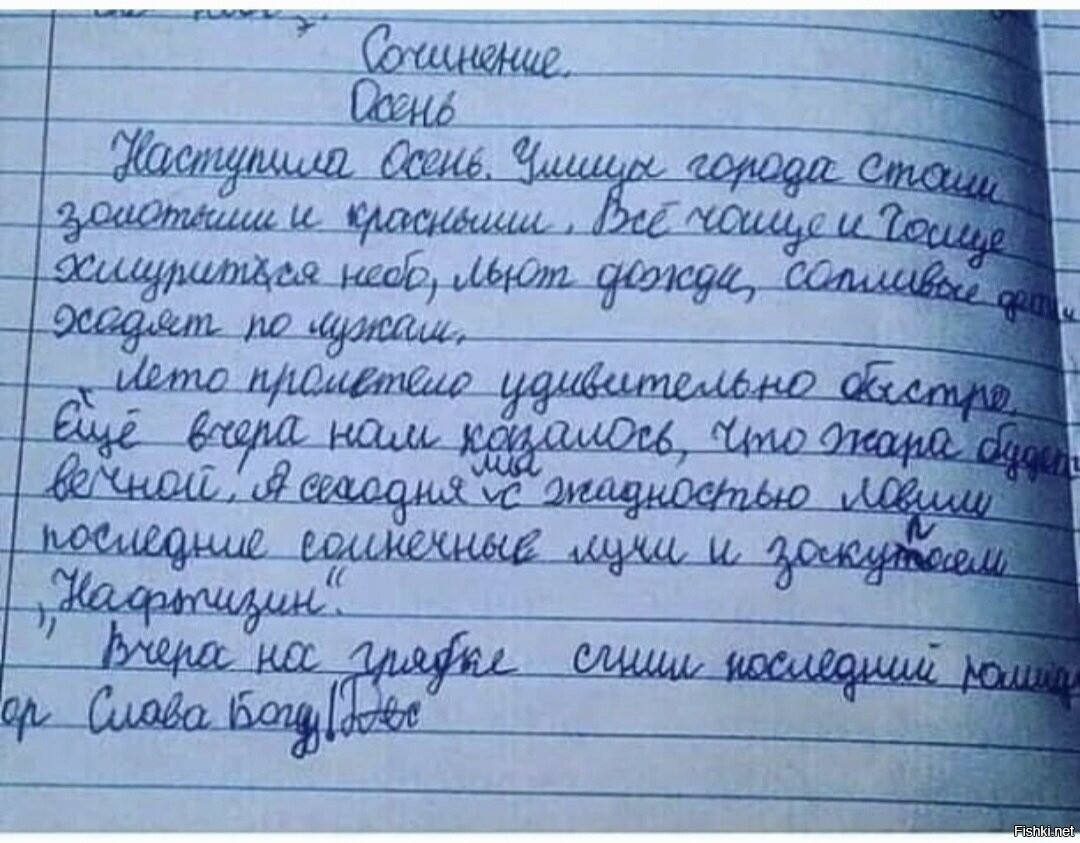 Сочинение.
Осень
Наступила Осень. Улицы города стали
золотыми и красными. Всё чаще и чаще
хмуриться небо, льют дожди, сопливые дети
ходят по лужам.
Лето пролетело удивительно быстро.
Ещё вчера нам казалось, что жара будет
вечной. А сегодня мы с жадностью ловим
последние солнечные лучи и закупаем
„Нафтизин“.
Вчера на грядке сгнил последний помид
ор Слава Богу!
Fishki.net